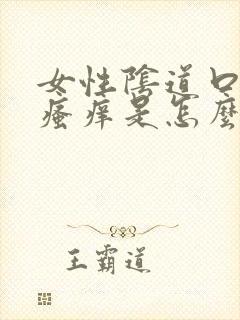 女性陰道口
瘙痒是怎麼
王霸道